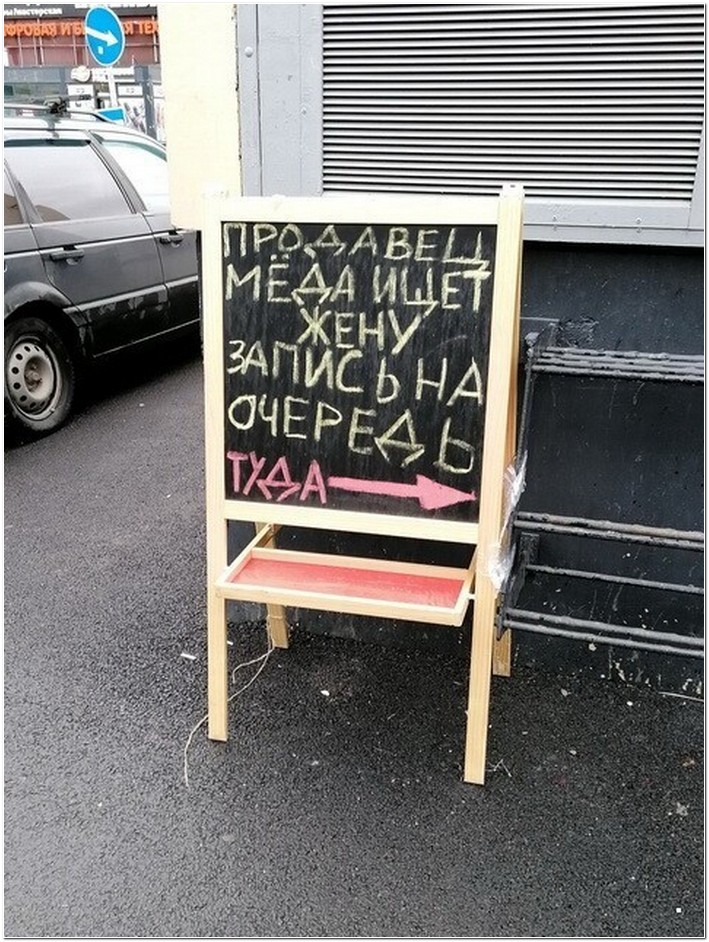 ПРОДАВЕЦ
МЁДА ИЩЕТ
ЖЕНУ
ЗАПИСЬ НА
ОЧЕРЕДЬ
ТУДА